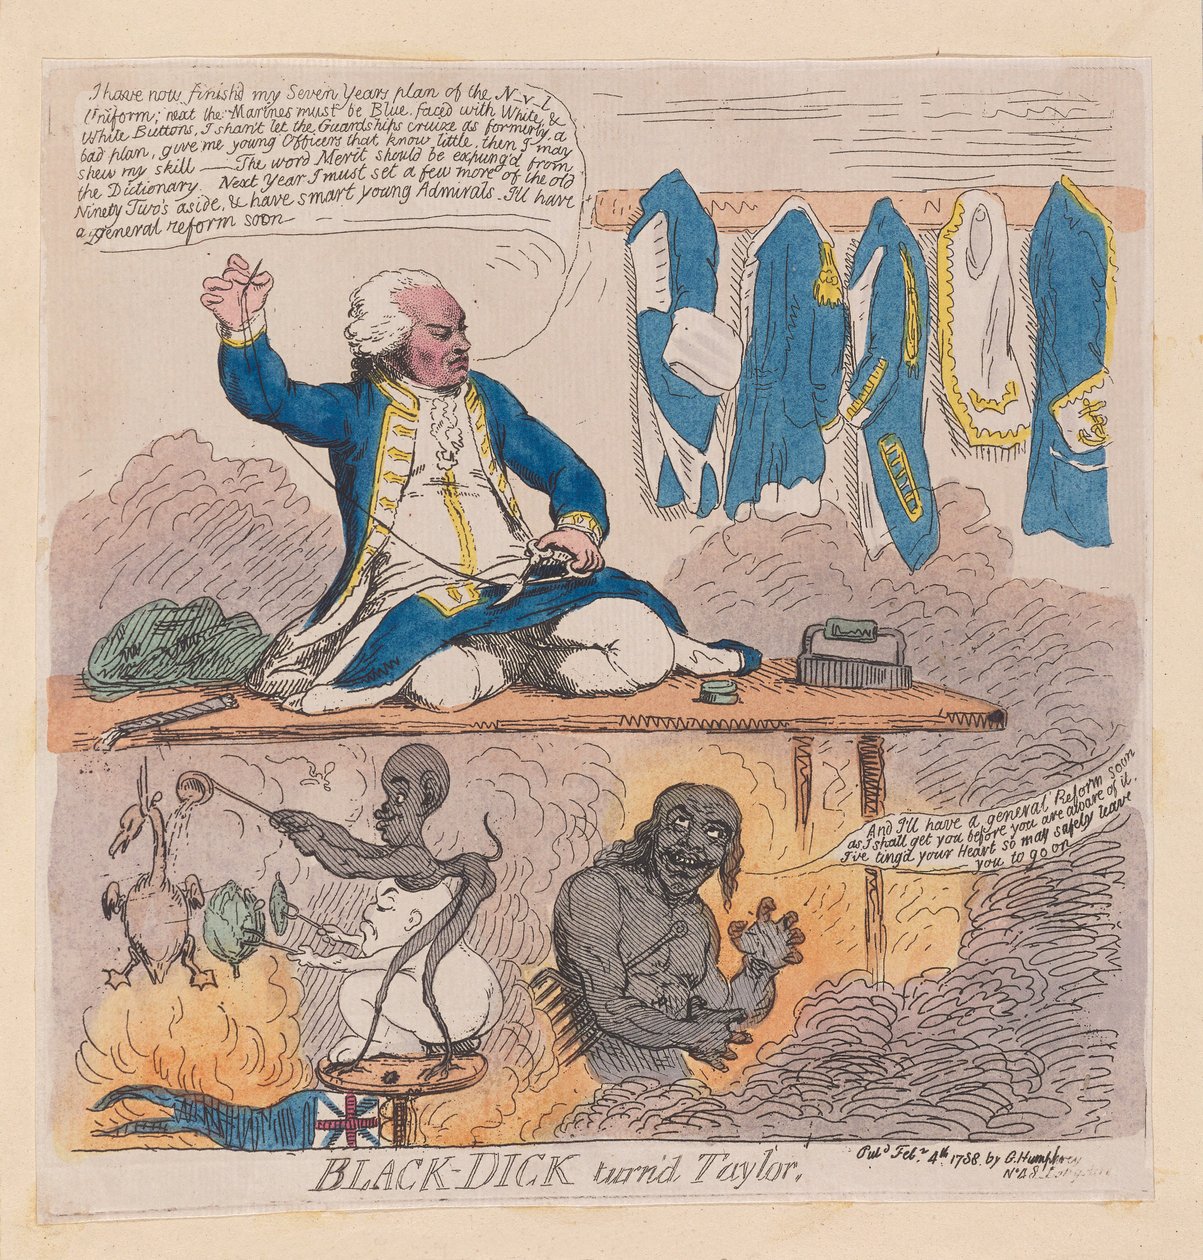 I have now finish'd my Seven Years plan of the N_v_l
Uniform; next the Marines must be Blue faced with White, &
White Buttons, I shan't let the Guardships cruize as formerly, a
bad plan, give me young Officers that know little, then I may
shew my skill — The word Merit should be expung'd from
the Dictionary. Next Year I must set a few more of the old
Ninety Two's aside, & have smart young Admirals_I'll have
a general reform soon
And I'll have a general Reform soon
as I shall get you before you are aware of it.
I've ting'd your Heart so may safely leave
you to go on
BLACK-DICK turn'd Taylor.
Pub.d Feb.r 4.th 1788. by G. Humphrey
N.o 48